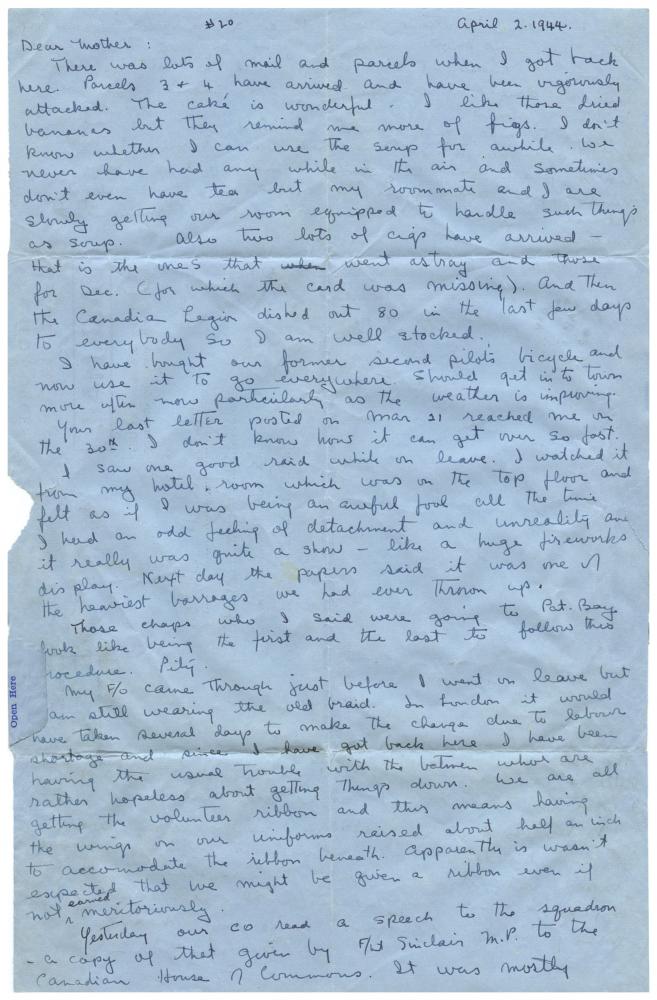 #20 April 2. 1944.
Dear Mother :
There was lots of mail and parcels when I got back
here. Parcels 3 + 4 have arrived and have been vigorously
attacked. The cake is wonderful. I like those dried
bananas but they remind me more of figs. I don't
know whether I can use the soup for awhile. We
never have had any while in the air and sometimes
don't even have tea but my roommate and I are
slowly getting our room equipped to handle such things
as soup. Also two lots of cigs have arrived –
that is the ones that when went astray and those
for Dec. (for which the card was missing). And then
the Canadian Legion dished out 80 in the last few days
to everybody so I am well stocked.
I have bought our former second pilot's bicycle and
now use it to go everywhere. Should get in to town
more often now particularly as the weather is improving.
Your last letter posted on Mar 21 reached me on
the 30th. I don't know how it can get over so fast.
I saw one good raid while on leave. I watched it
from my hotel room which was on the top floor and
felt as if I was being an awful fool all the time
I had an odd feeling of detachment and unreality and
it really was quite a show – like a huge fireworks
display. Next day the papers said it was one of
the heaviest barrages we had ever thrown up.
Those chaps who I said were going to Pat. Bay
look like being the first and the last to follow this
rocedure. Pity.
My F/O came through just before I went on leave but
am still wearing the old braid. In London it would
have taken several days to make the change due to labour
shortage and since I have got back here I have been
having the usual trouble with the batmen who are
rather hopeless about getting things down. We are all
getting the volunteer ribbon and this means having
the wings on our uniforms raised about half an inch
to accomodate the ribbon beneath. Apparently is wasn't
expected that we might be given a ribbon even if
not earned meritoriously.
Yesterday our CO read a speech to the squadron
– a copy of that given by F/Lt Sinclair M.P. to the
Canadian House of Commons. It was mostly
Open Here